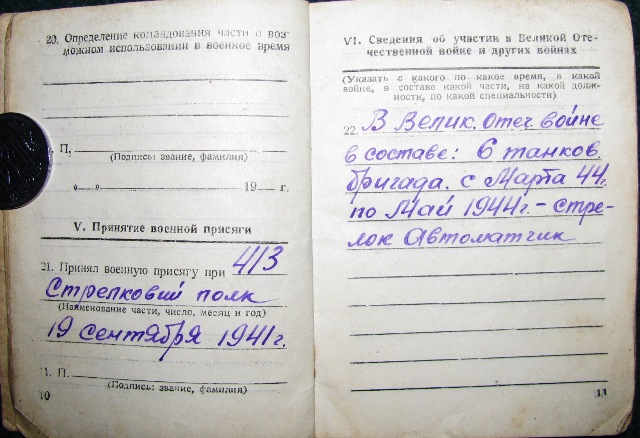 20. Определение командования части о воз-
можном использовании в военное время
П.
(Подпись: звание, фамилия)
19 г.
V. Принятие военной присяги
21. Принял военную присягу при 413
Стрелковий полк
(Наименование части, число, месяц и год)
19 сентября 1941 г.
П.
(Подпись: звание, фамилия)
10
VI. Сведения об участии в Великой Оте-
чественной войне и других войнах
(Указать с какого по какое время, в какой
войне, в составе какой части, на какой долж-
ности, по какой специальности)
22. В Велик. Отеч войне
в составе: 6 танков.
бригада. с Марта 44.
по Май 1944г. - стре-
лок Автоматчик
11